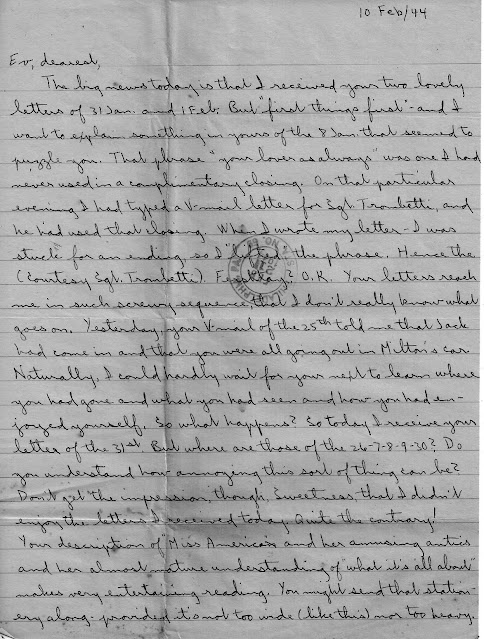 10 Feb/44
Ev, dearest,
The big news today is that I received your two lovely
letters of 31 Jan. and 1 Feb. But "first things first" - and I
want to explain something in yours of the 8 Jan. that seemed to
puzzle you. That phrase "your lover as always" was one I had
never used in a complimentary closing. On that particular
evening I had typed a V-mail letter for Sgt. Trombetti, and
he had used that closing. When I wrote my letter - I was
stuck for an ending, so I the phrase. Hence the
(Courtesy Sgt. Trombetti). O.K. Your letters reach
me in such screwy sequence, that I don't really know what
goes on. Yesterday your V-mail of the 25th told me that Jack
had come in and that you were all going out in Milton's car.
Naturally, I could hardly wait for your next to learn where
you had gone and what you had seen and how you had en-
joyed yourself. So what happens? So today I receive your
letter of the 31st. But where are those of the 26-7-8-9-30? Do
you understand how annoying this sort of thing can be?
Don't get the impression, though, Sweetness that I didn't
enjoy the letters I received today. Quite the contrary!
Your description of "Miss America's and her amusing antics
and her almost mature understanding of "what it's all about"
makes very entertaining reading. You might send that station-
ery along - provided it's not too wide (like this) nor too heavy.